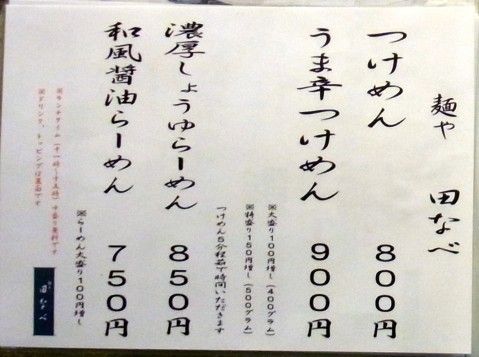 麺や 田なべ
つけめん 800円
うま辛つけめん 900円
※大盛り100円増し(400グラム)
※特盛り150円増し(500グラム)
つけめん5分程茹で時間いただきます
濃厚しょうゆらーめん 850円
和風醤油らーめん 750円
※らーめん大盛り100円増し
※ランチタイム(十一時〜十五時)中盛り無料です
※ドリンク、トッピングは裏面です
田なべ